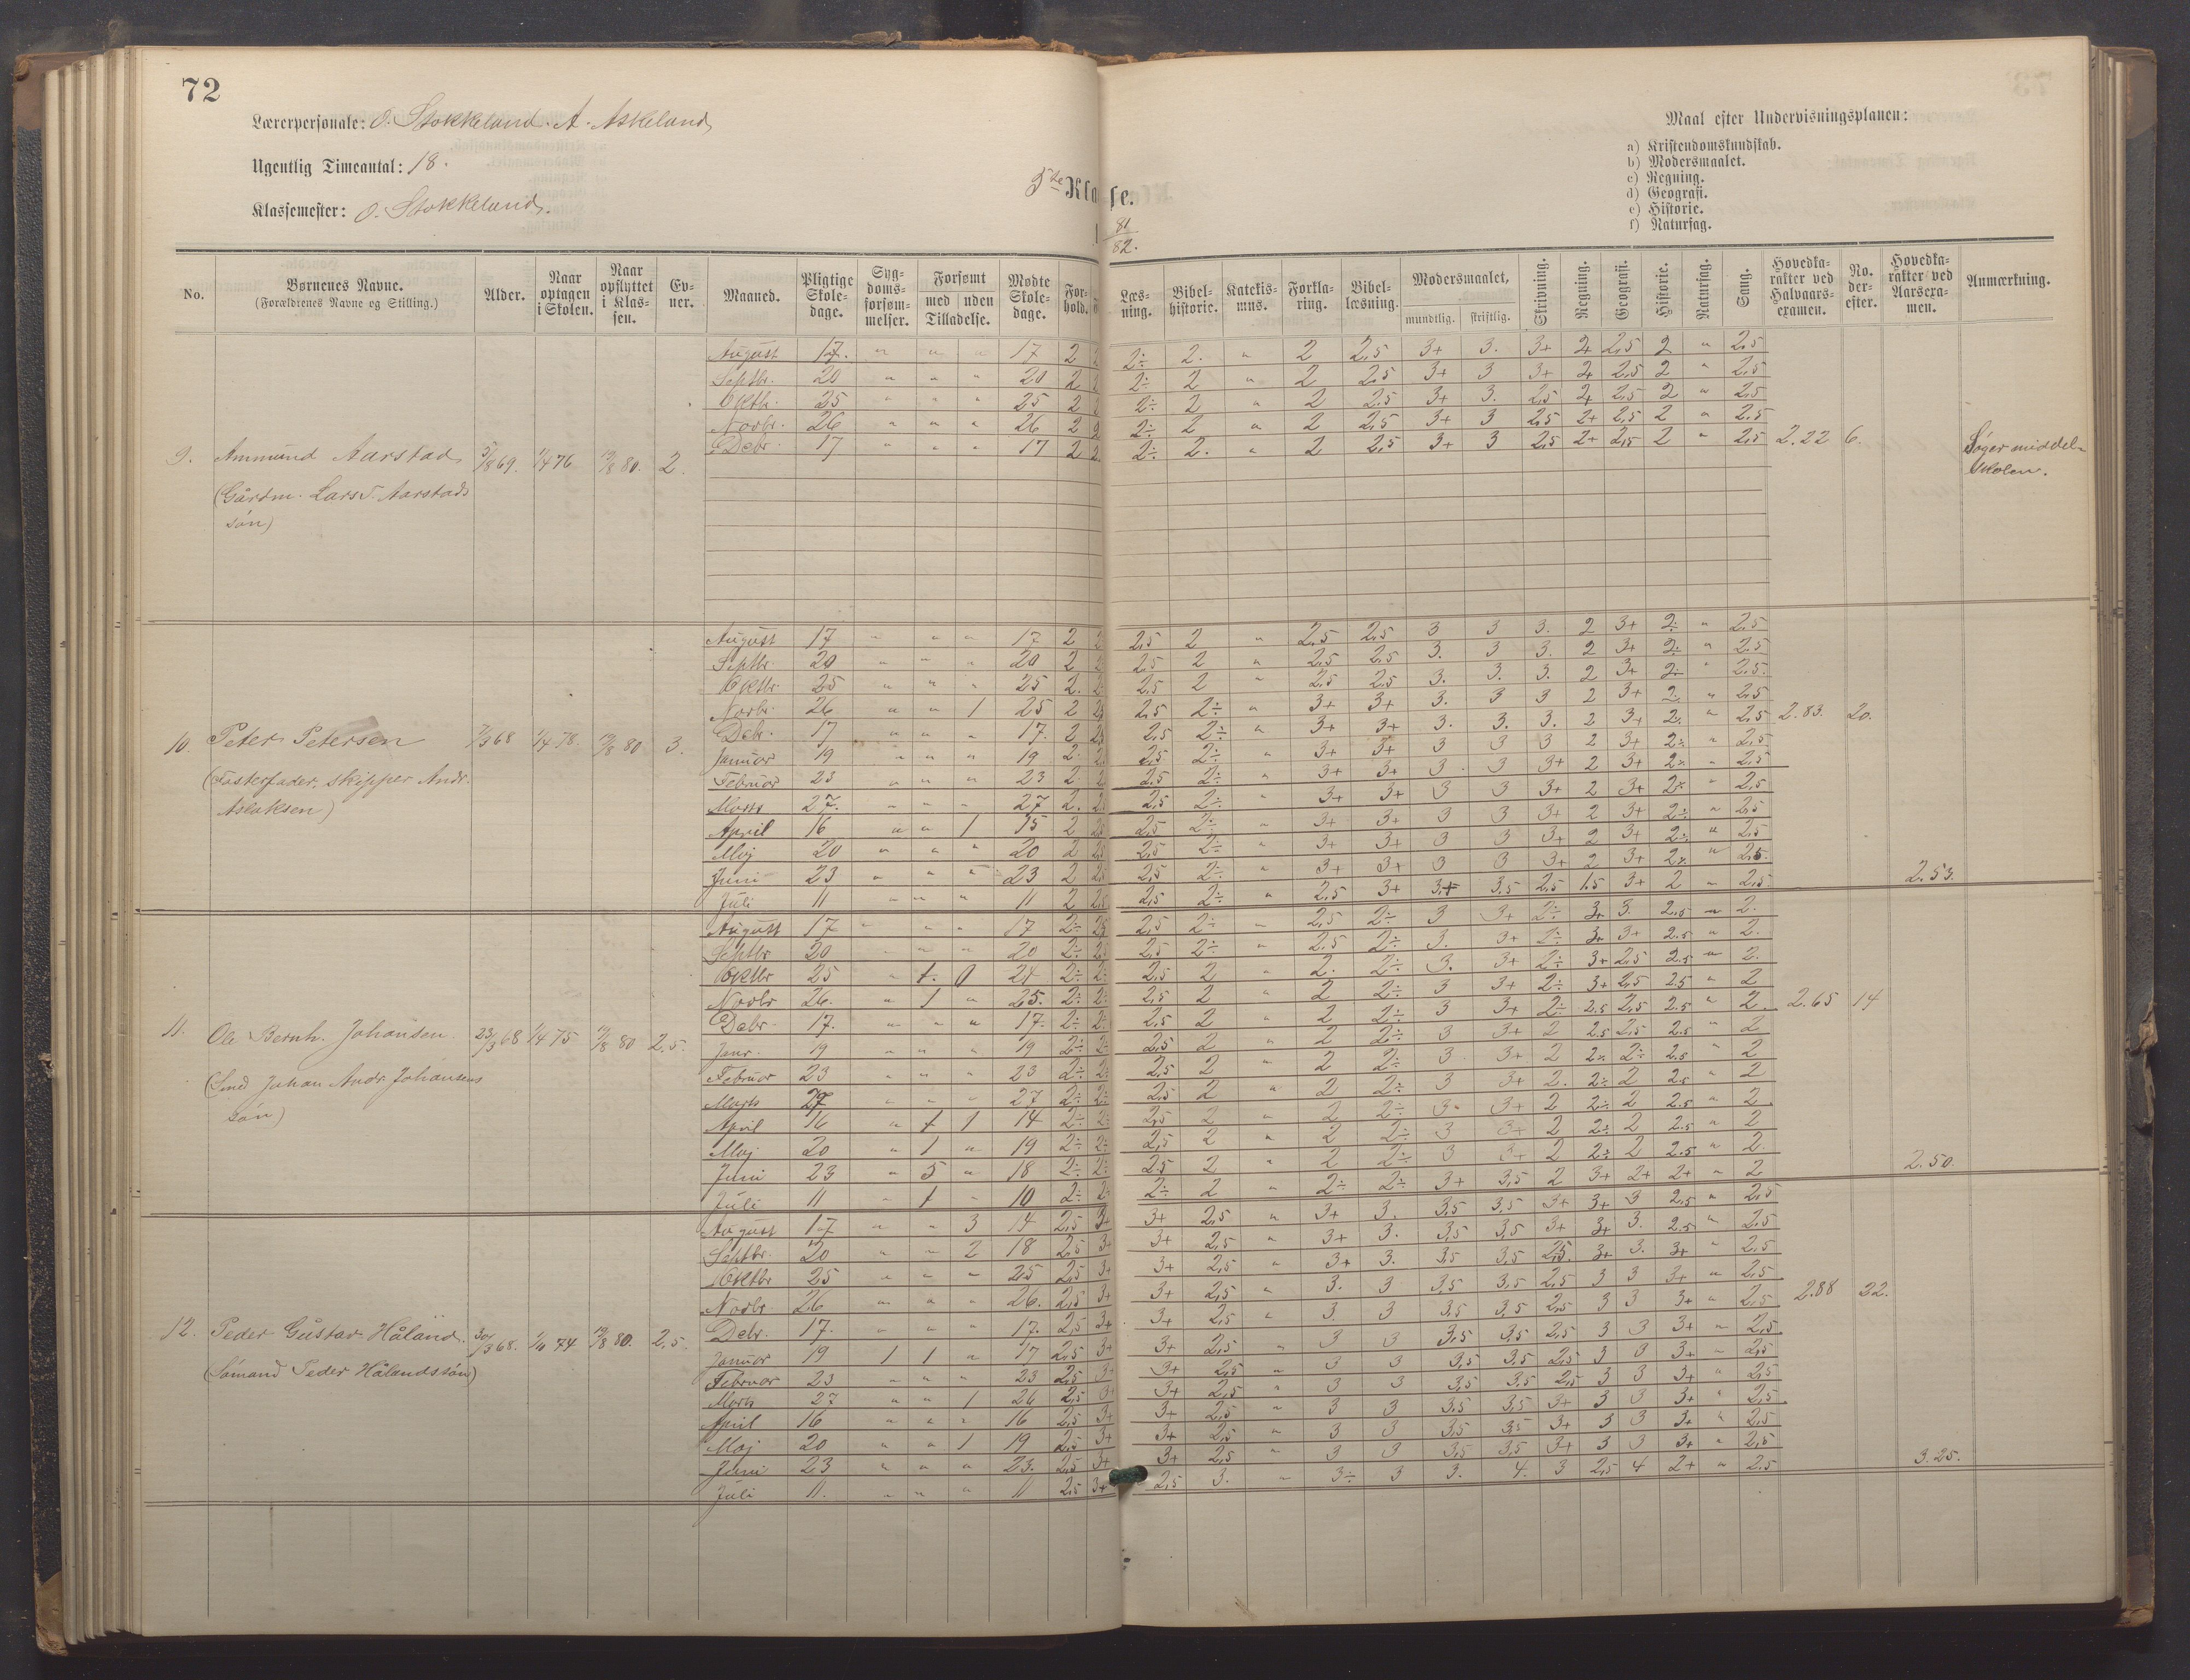 72
Lærerpersonale: O. Stokkeland. A. Askeland
Ugentlig Timeantal: 18.
Klassemester: O. Stokkeland.
5te Klasse.
81/82.
Maal efter Undervisningsplanen:
a) Kristendomskundskab.
b) Modersmaalet.
c) Regning.
d) Geografi.
e) Historie.
f) Naturfag.
No. | Børnenes Navne. (Forældrenes Navne og Stilling.) | Alder. | Naar optagen i Skolen. | Naar opflyttet i Klassen. | Evner. | Maaned. | Pligtige Skoledage. | Sygdomsforsømmelser. | Forsømt med Tilladelse. | uden Tilladelse. | Mødte Skoledage. | Forhold. | Læsning. | Bibelhistorie. | Katekismus. | Forklaring. | Bibellæsning. | Modersmaalet, mundtlig. | skriftlig. | Skrivning. | Regning. | Geografi. | Historie. | Naturfag. | Sang. | Hovedkarakter ved Halvaarsexamen. | No. derefter. | Hovedkarakter ved Aarsexamen. | Anmærkning.
August 17. " " " 17 2 2÷ 2. " 2 2,5 3+ 3. 3+ 2 2,5 2 " 2,5
Septbr. 20 " " " 20 2 2÷ 2 " 2 2,5 3+ 3 3+ 2 2,5 2 " 2,5
Oktbr. 25 " " " 25 2 2÷ 2 " 2 2,5 3+ 3. 2,5 2 2,5 2 " 2,5
Novbr. 26 " " " 26 2 2÷ 2 " 2 2,5 3+ 3 2,5 2+ 2,5 2 " 2,5
9. Ammund Aarstad 5/8 69. 1/4 76 19/8 80. 2. Debr 17 " " " 17 2 2÷ 2. " 2 2,5 3+ 3 2,5 2+ 2,5 2 " 2,5 2.22 6. Søger middelskolen.
(Gårdm. Lars T. Aarstads
søn)
August 17 " " " 17 2 2,5 2 " 2,5 2,5 3 3 3. 2 3+ 2÷ " 2,5
Septbr 20 " " " 20 2 2,5 2 " 2,5 2,5 3. 3 3. 2 3+ 2÷ " 2,5
Oktbr. 25 " " " 25 2. 2,5 2 " 2,5 2,5 3. 3. 3. 2 3+ 2÷ " 2,5
Novbr. 26 " " 1 25 2 2,5 2÷ " 3+ 3+ 3. 3 3 2 3+ 2÷ " 2,5
10. Peter Petersen 7/3 68 1/4 78. 19/8 80 3. Debr. 17 " " " 17. 2 2,5 2÷ " 3+ 3+ 3. 3. 3. 2 3+ 2÷ " 2,5 2.83. 20.
(Fosterfader, skipper Andr.
Aslaksen)
Januar 19 " " " 19 2. 2,5 2÷ " 3+ 3+ 3 3 3 2 3+ 2÷ " 2,5
Februar 23 " " " 23 2. 2,5 2÷ " 3+ 3+ 3 3 3+ 2 3+ 2÷ " 2,5
Marts 27. " " " 27 2. 2,5 2÷ " 3+ 3+ 3 3 3+ 2 3+ 2÷ " 2,5
April 16 " " 1 15 2 2,5 2÷ " 3+ 3+ 3 3 3+ 2 3+ 2÷ " 2,5
Maj 20 " " " 20 2 2,5 2÷ " 3+ 3+ 3 3 3+ 2 3+ 2÷ " 2,5
Juni 23 " " " 23 2 2,5 2÷ " 3+ 3+ 3 3 3+ 2 3+ 2÷ " 2,5.
Juli 11 " " " 11 2 2,5 2,5 2÷ " 2,5 3+ 3+ 3.5 2,5 1.5 3+ 2 " 2,5 2.53.
August 17 " " " 17 2÷ 2,5 2÷ " 2,5 2÷ 3 3+ 2÷ 3+ 3. 2.5 " 2.
Septbr 20 " " " 20 2÷ 2,5 2÷ " 2.5 2÷ 3. 3+ 2÷ 3+ 3+ 2.5 " 2.
Oktbr 25 " 1. 0 24 2÷ 2÷ 2,5 2 " 2. 2÷ 3. 3+ 2÷ 3+ 2,5 2.5 " 2.
Novbr 26. " 1 " 25. 2÷ 2÷ 2,5 2 " 2 2÷ 3 3+ 2÷ 3+ 2,5 2.5 " 2
11. Ole Bernh. Johansen 23/3 68 1/4 75 19/8 80 2,5. Debr. 17. " " " 17. 2÷ 2÷ 2,5 2 " 2 2÷ 3 3+ 2÷ 2.5 2,5 2.5 " 2 2.65 14
(Smed Johan Andr. Johansens
søn)
Janr. 19 " " " 19 2÷ 2÷ 2,5 2 " 2 2÷ 3 3+ 2 2.5 2,5 2.5 " 2
Februar 23 " " " 23 2÷ 2÷ 2,5 2 " 2 2÷ 3 3+ 2 2÷ 2÷ 2.5 " 2
Marts 27 " " " 27 2÷ 2÷ 2,5 2 " 2 2÷ 3 3+ 2. 2÷ 2 2.5 " 2
April 16 " 1 1 14 2÷ 2÷ 2,5 2 " 2 2÷ 3 3+ 2 2÷ 2 2.5 " 2
Maj 20 " 1 " 19 2÷ 2÷ 2,5 2 " 2 2÷ 3 3+ 2 2÷ 2 2.5 " 2
Juni 23 " 5 " 18 2÷ 2÷ 2.5 2 " 2 2÷ 3 3+ 2 2÷ 2 2.5 " 2
Juli 11 " 1 " 10 2÷ 2÷ 2÷ 2 " 2÷ 2÷ 3+ 3,5 2 3+ 2+ 2+ " 2 2.50.
August 17 " " 3 14 2,5 3+ 3+ 2,5 " 3+ 3. 3,5 3,5 3+ 3+ 3 2,5 " 2,5
Septbr. 20 " " 2 18 2,5 3+ 3+ 2,5 " 3+ 3. 3,5 3,5 3+ 3+ 3. 2.5 " 2,5
Oktbr 25 " " " 25 2,5 3+ 3+ 2,5 " 3+ 3. 3,5 3,5 2,5. 3+ 3. 3+ " 2,5
Novbr 26 " " " 26. 2,5 3+ 3+ 2,5 " 3. 3 3,5 3,5 2,5 3 3 3+ " 2,5
12. Peder Gustav Håland. 30/3 68. 74 19/8 80. 2,5. Debr. 17. " " " 17. 2,5 3+ 3+ 2,5 " 3 3 3,5 3,5 2,5 3 3 3+ " 2,5 2.88 22.
(Sømand Peder Hålands søn)
Januar 19 1 1 " 17 2,5 3+ 3+ 2,5 " 3 3 3,5 3,5 2,5 3 3 3+ " 2,5
Februar 23 " " " 23 2,5 3+ 3+ 2,5 " 3 3 3,5 3,5 2,5 3 3 3+ " 2,5
Marts 27 " " 1 26 2,5 3+ 3+ 2,5 " 3 3 3,5 3,5 2,5 3 3 3+ " 2,5
April 16 " " " 16 2,5 3+ 3+ 2,5 " 3 3 3,5 3,5 3+ 3 3 3+ " 2,5
Maj 20 " " 1 19 2,5 3+ 3+ 2,5 " 3 3 3,5 3,5 3+ 3 3 3+ " 2,5
Juni 23 " " " 23. 2,5 3+ 3+ 2,5 " 3 3 3,5 3,5 3+ 3 3 3+ " 2,5
Juli 11. " " " 11 2,5 3+ 2,5 3. " 3÷ 3 3. 4. 3 2,5 4 2+ " 2.5 3.25.